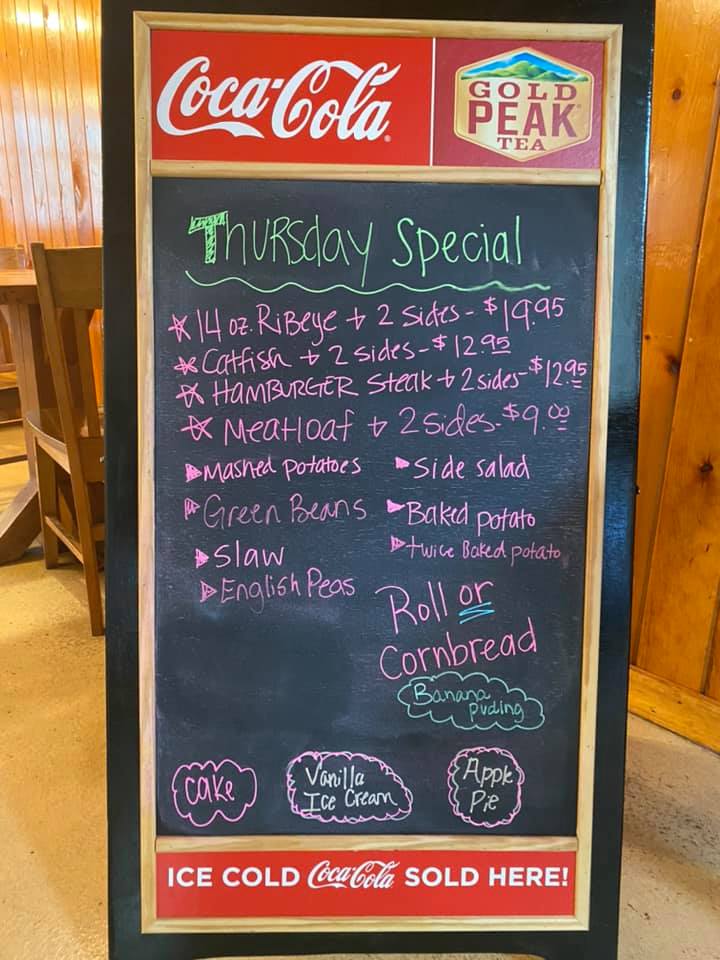 Coca-Cola
GOLD
PEAK
TEA
Thursday Special
14 oz. Ribeye + 2 sides - $19.95
Catfish + 2 sides - $12.95
HAMBURGER Steak + 2 sides - $12.95
Meatloaf + 2 Sides - $9.00
Mashed potatoes
Side salad
Green Beans
Baked potato
Slaw
twice Baked potato
English Peas
Roll or
Cornbread
Banana
puding
Cake
Vanilla
Ice Cream
Apple
Pie
ICE COLD Coca-Cola SOLD HERE!